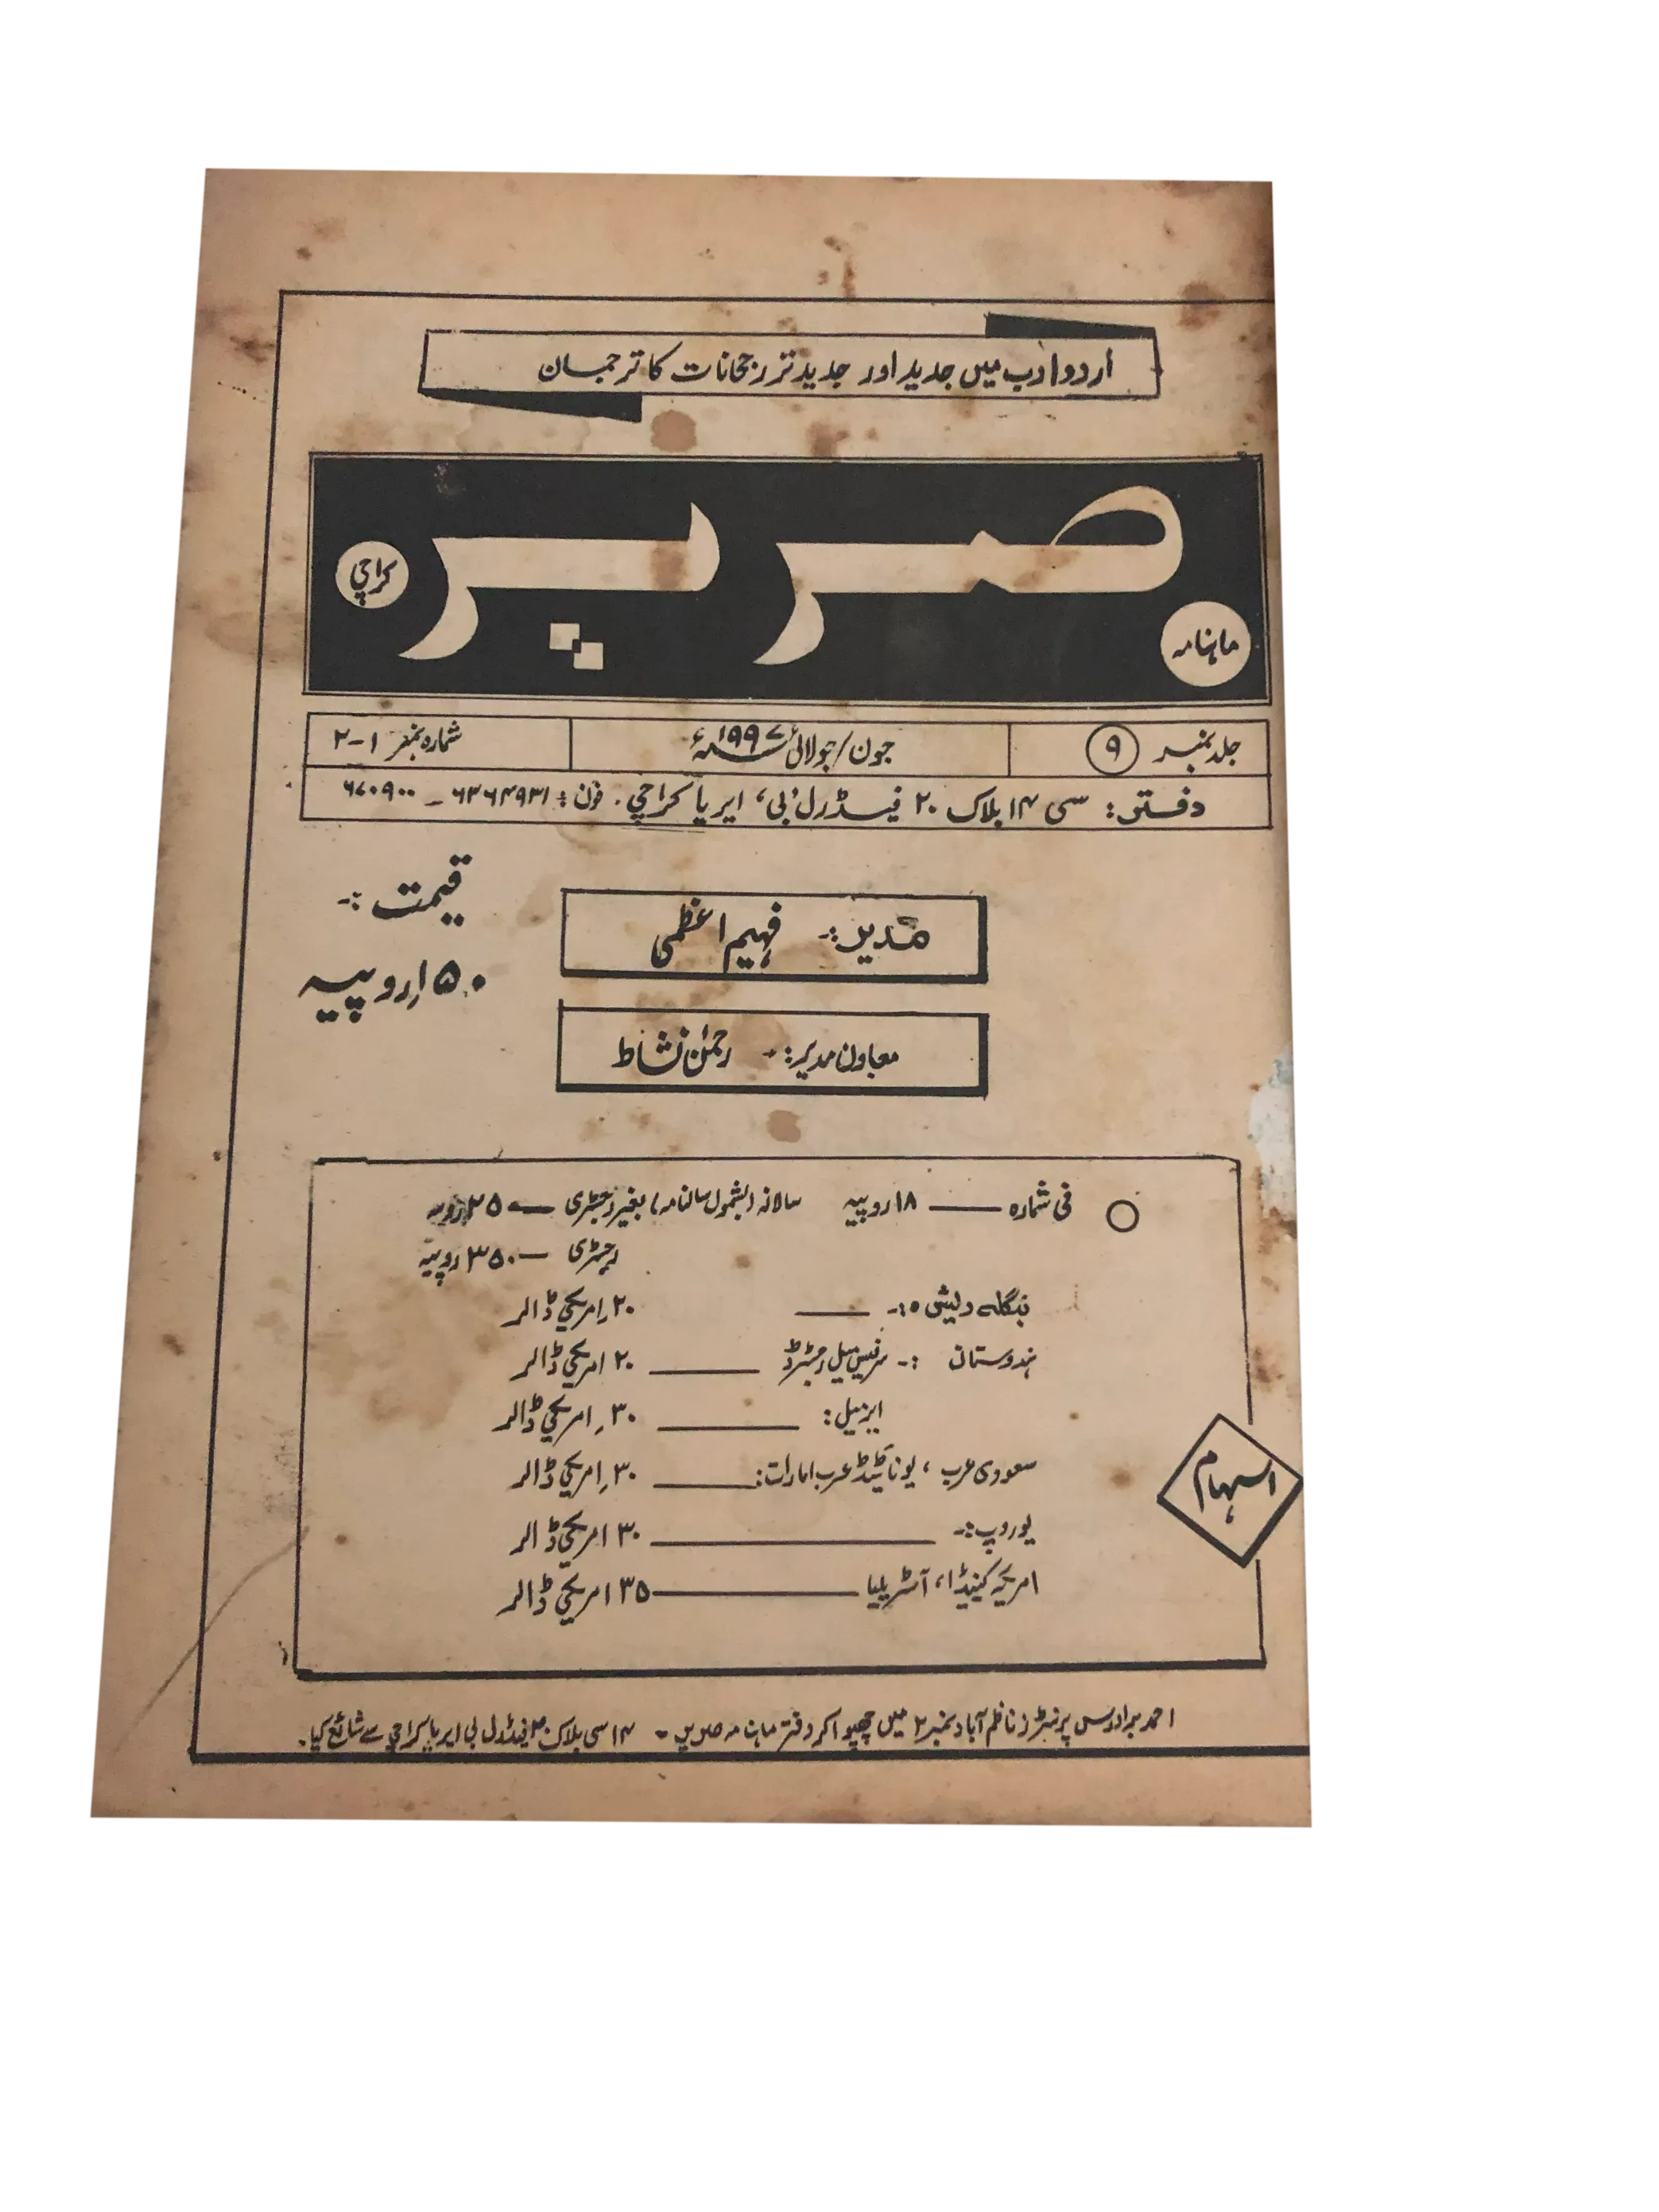 اردو ادب میں جدید اور جدید تر رجحانات کا ترجمان
ماہنامہ صریر کراچی
جلد نمبر ۹ جون/جولائی ۱۹۹۷ء شمارہ نمبر ۱-۲
دفتر: سی ۱۴ بلاک ۲۰ فیڈرل 'بی' ایریا کراچی. فون: ۶۳۶۴۹۳۱ - ۶۷۰۹۰۰
قیمت :-
۱۵۰ روپیہ
مدیر :- فہیم اعظمی
معاون مدیر :- رحمٰن نشاط
فی شمارہ —— ۱۸ روپیہ سالانہ (بشمول سالنامہ) بغیر رجسٹری — ۲۵۰ روپیہ
رجسٹری — ۳۵۰ روپیہ
بنگلہ دیش :- —— ۲۰ امریکی ڈالر
ہندوستان :- سرفیس میل رجسٹرڈ —— ۲۰ امریکی ڈالر
ایرمیل : —— ۳۰ امریکی ڈالر
سعودی عرب ، یونائیٹڈ عرب امارات : —— ۳۰ امریکی ڈالر
یوروپ :- —— ۳۰ امریکی ڈالر
امریکہ کینیڈا، آسٹریلیا —— ۳۵ امریکی ڈالر
احمد برادرس پرنٹرز ناظم آباد نمبر ۲ میں چھپوا کر دفتر ماہنامہ صریر - ۱۴ سی بلاک ۲۰ فیڈرل بی ایریا کراچی سے شائع کیا.